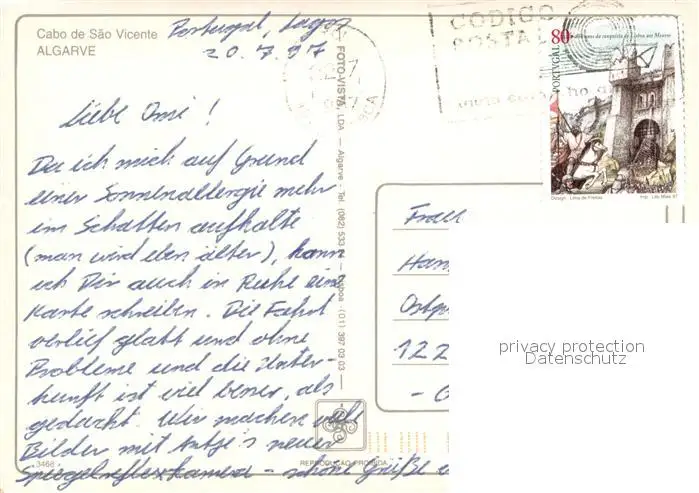 Cabo de São Vicente
ALGARVE
Portugal, Lagos
20.7.97
Liebe Omi!
Da ich mich auf Grund
einer Sonnenallergie mehr
im Schatten aufhalte
(man wird eben älter), kann
ich Dir auch in Ruhe eine
Karte schreiben. Die Fahrt
verlief glatt und ohne
Probleme und die Unter-
kunft ist viel besser, als
gedacht. Wir machen viele
Bilder mit Antje's neuer
Spiegelreflexkamera - schöne Grüße
3468
REPRODUÇÃO PROIBIDA
FOTO-VISTA, LDA — Algarve - Tel. (082) 533 — Lisboa (01) 397 03 03
CODIGO
POSTAL
80
PORTUGAL
anos da conquista de Lisboa aos Mouros
Design. Lima de Freitas
Imp. Lito Maia 97
Frau
Han
Ostp
122
privacy protection
Datenschutz